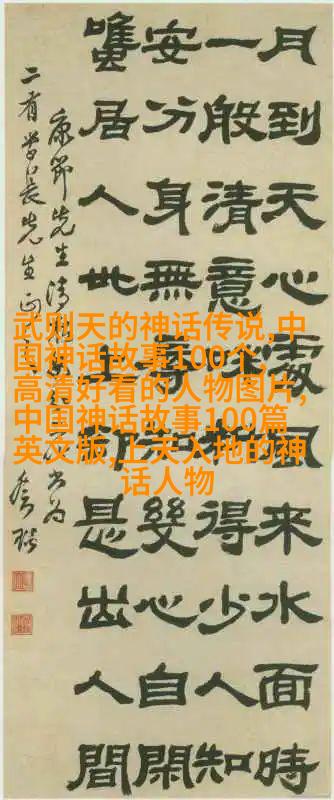 月到天心處風來水面時
一般清意味料得少人知
安分身無辱知幾心自閑
雖居人世上却是出人間
康節先生清
二有學長先生正
武则天的神话传说,中
国神话故事100个,
高清好看的人物图片,
中国神话故事100篇
英文版,上天入地的神
话人物